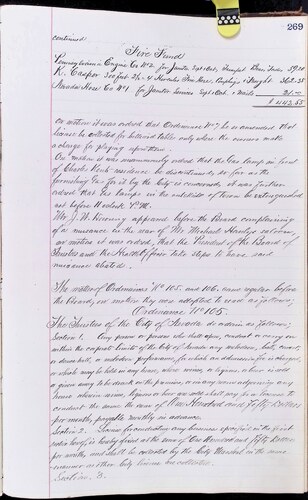 269
continued
Fire Fund
Pennsylvania Engine Co No 2 for Janitor Sept & Oct, 59.00
K. Casper 300 feet 2½ - 4 Fire Hose, Couplings & Freight 362.55
Nevada Hose Co No 1 for Janitor Services Sept & Oct, & 21.
$ 442.55
On motion it was ordered that Ordinance No 7, be so amended that
license be collected for billiard tables only when the owners make
a charge for playing upon them.
On motion it was unanimously ordered that the Gas lamp in front
of Charles residence be discontinued, so far as the
furnishing Gas for it by the City is concerned. it was further
ordered that Gas lamps in the outskirts of town be extinguished
not before 11 o'clock P.M.
Mr. J. W. appeared before the Board complaining
of a nuisance in the rear of Mr. Michael Hawleys saloon,
on motion it was ordered, that the President of the Board of
Trustees and the Marshal take steps to have said
nuisance abated.
The matter of Ordinances No 105. and 106. came regular before
the Board, on motion they was adopted to read as follows;
Ordinance No 105.
The Trustees of the City of Nevada do ordain as follows;
Section 1. Any person or persons who shall open, conduct or carry on
within the corporate limits of the City of Nevada any
or dance hall, or performance, for which an admission fee is charged,
or which may be held in any house, where wine, or liquor, or beer is sold
or given away to be drank on the premises, or in any room adjoining any
house where wine, liquor or beer are sold shall pay a license to
conduct the same the sum of One Hundred and fifty Dollars
per month, payable monthly in advance.
Section 2. License for conducting any business specified in the first
section hereof, is hereby fixed at the sum of One Hundred and fifty Dollars
per month, and shall be collected by the City Marshal in the same
manner as other City licenses are collected.
Section. 3.